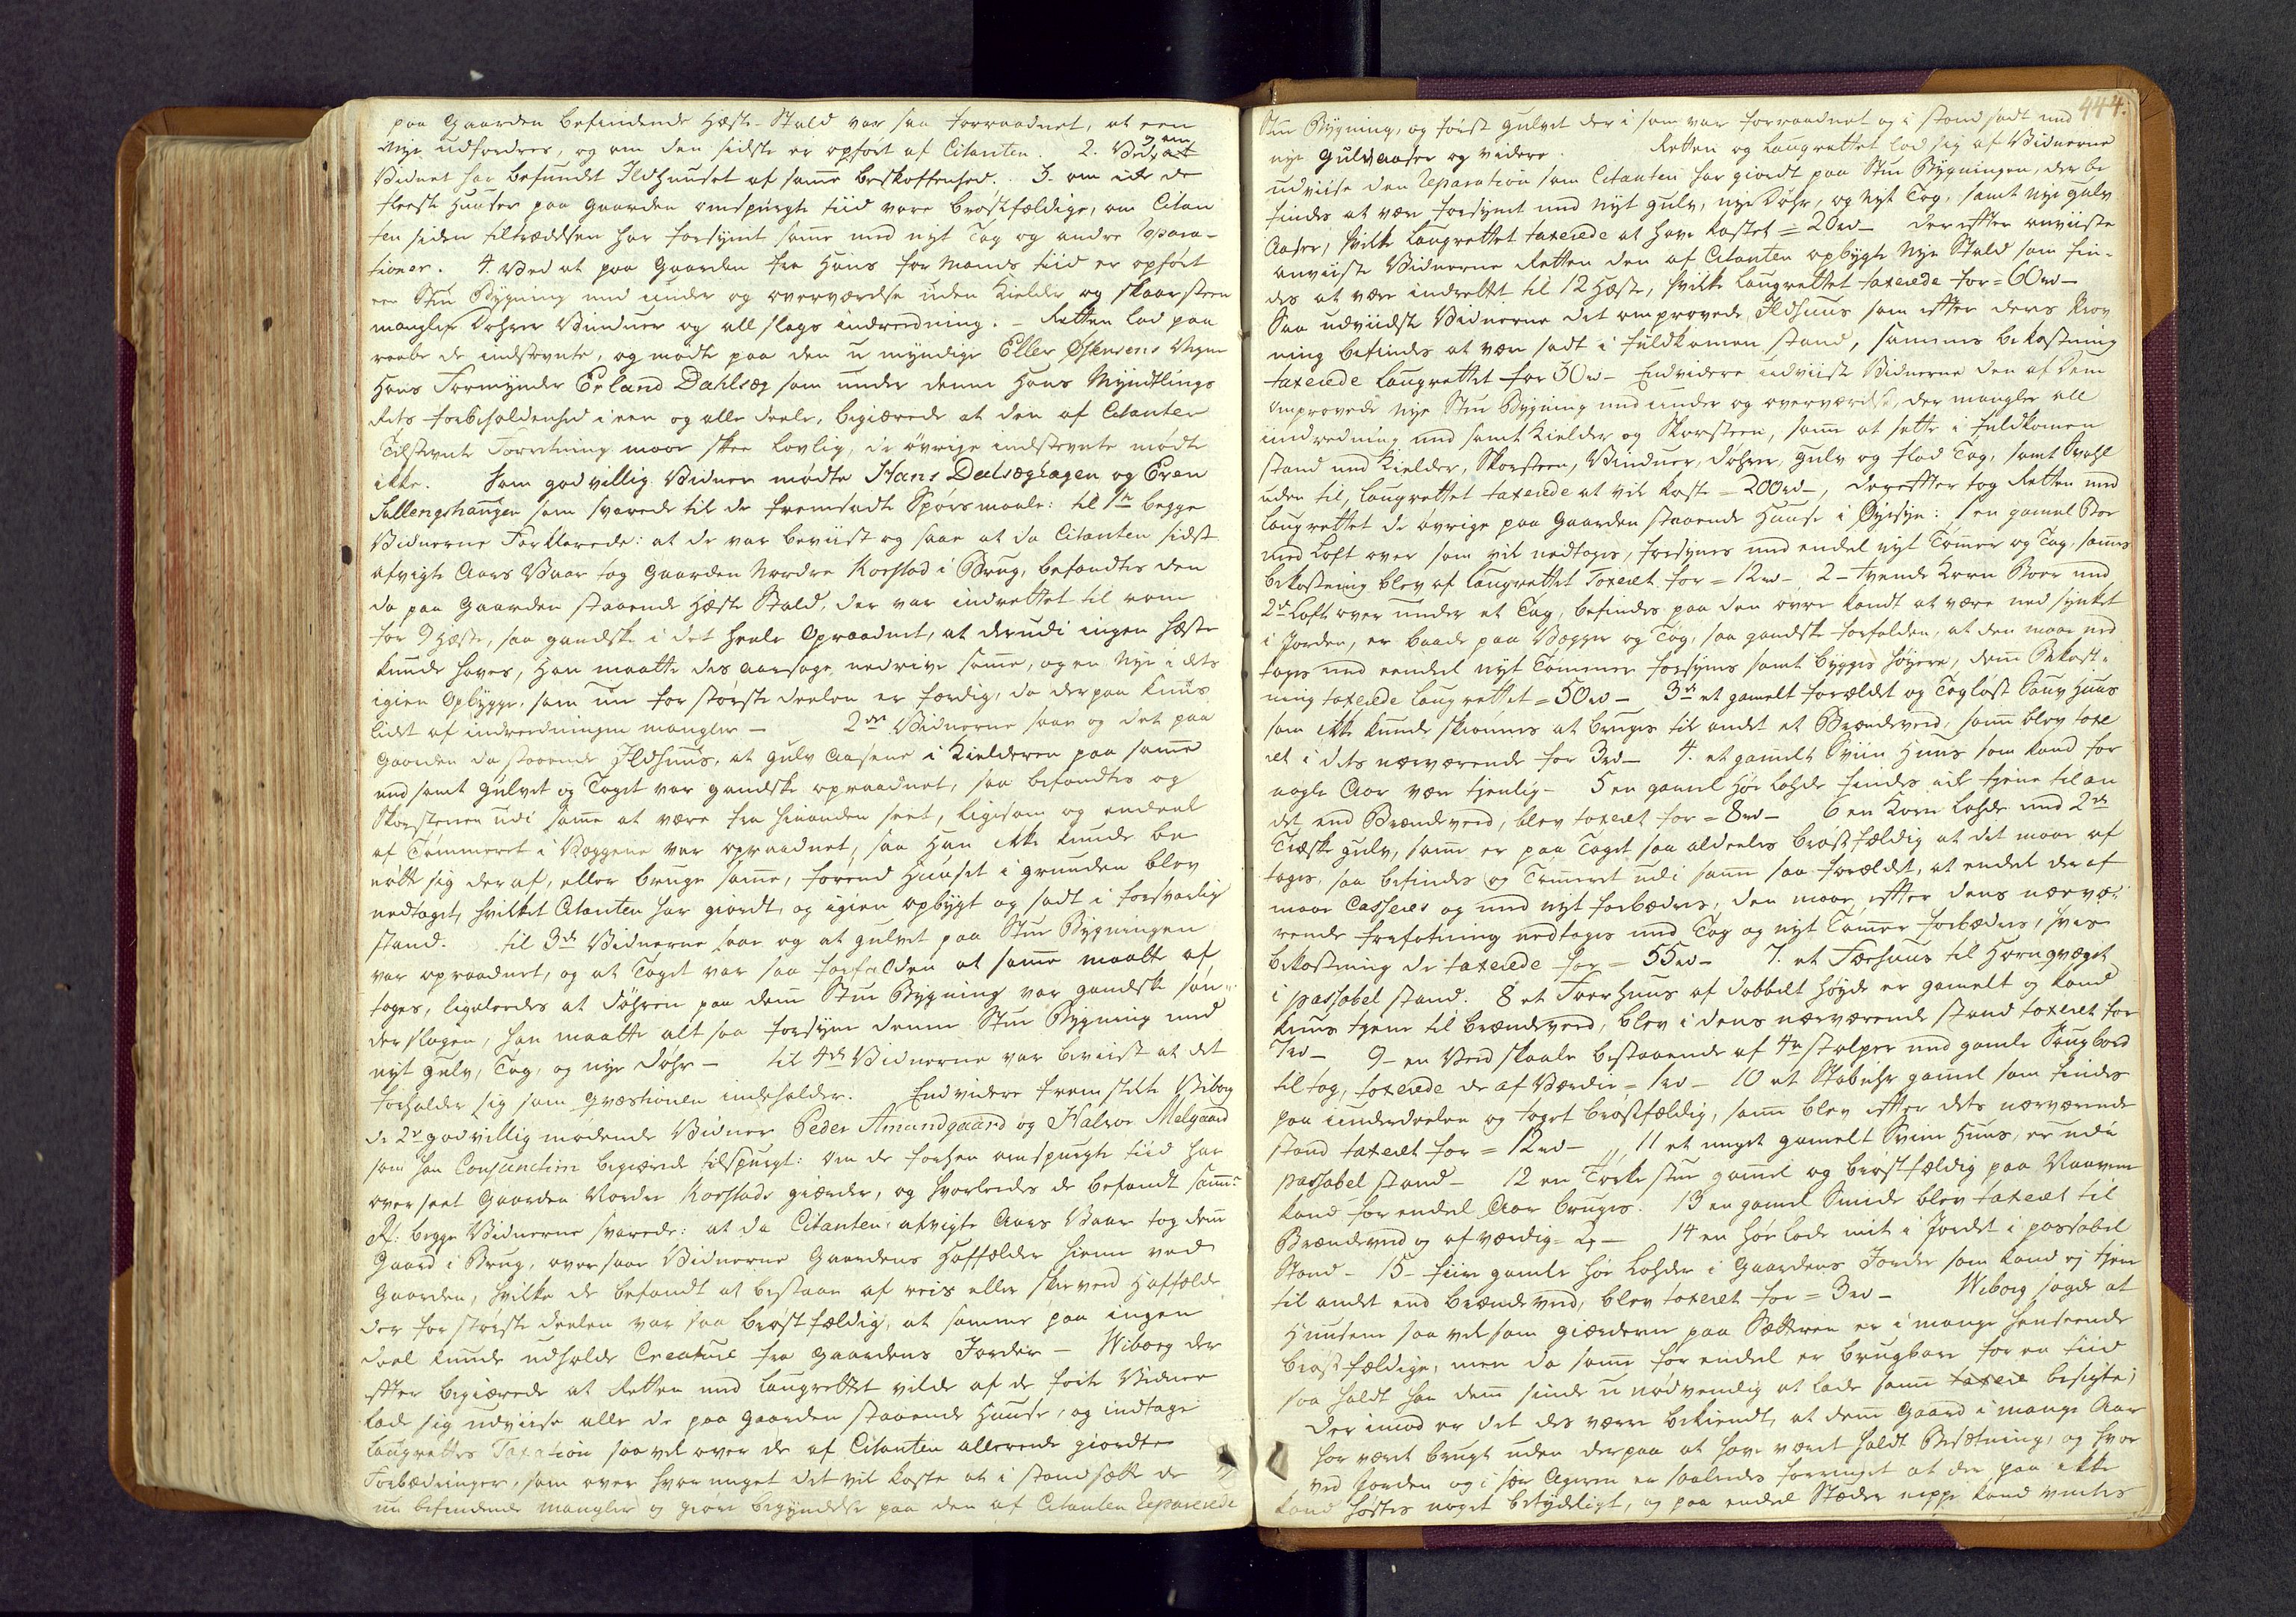 paa Gaarden befindende Hæste-Stald var saa forraadnet, at een
Nye udfordres, og om den sidste er opført af Citanten. 2. og om
Vidnet har befundet Ildhuuset af same beskaffenhed. 3. om ik de
fleeste Huuser paa Gaarden omspurgte tiid vare brøstfældige, om Citan
ten siden tiltrædelsen har forsynet same med nyt Tag og andre Repara-
tioner. 4. Ved at paa Gaarden fra Hans For Mands tiid er opført
een Stue Bygning med under og overværelse uden Kielder og Skaarsteen
mangler Døhrer Vinduer og all slags indreedning. - Retten lod paa
raabe de indstevnte, og mødte paa den u myndige Eller Østensens Vegne
Hans Formynder Erland Dahlseg som under denne Hans Myndtlings
Rets forbeholdenhed i een og alle deele, begiærede at den af Citanten
Tilstevnte Forretning maae skee lovlig, de øvrige indstevnte mødte
ikke. Som godvillig Vidner mødte Hans Dalseghagen og Even
Sallengshaugen som svarede til de fremsadte Spørsmaale: til 1te begge
Vidnerne Forklarede: at de var beviist og saae at da Citanten sidst
afvigte Aars Vaar tog Gaarden Nordre Korstad i Brug, befandtes den
da paa Gaarden staaende Hæste Stald, der var indrettet til rom
for 9 Hæste, saa gandske i det heele Opraadnet, at derudi ingen Hæste
kunde haves, Han maatte des aarsage nedrive same, og en Nye i dets
igien Opbygge, som nu for største deelen er færdig, da der paa kuns
lidet af indreedningen mangler - 2det Vidnerne saae og det paa
Gaarden da staaende Ildhuus, at Gulv Aasene i Kielderen paa same
med samt Gulvet og Taget var gandske opraadnet, saa befandtes og
Skorstenen udi same at være fra hinanden seet, ligesom og endeel
af Tømmeret i Væggene var opraadnet, saa Han ikke kunde be
nøtte sig deraf, eller bruge same, forend Huuset i grunden blev
nedtaget, hvilket Citanten har giordt, og igien opbygt og sadt i forsvarlig
stand. til 3de Vidnerne saae og at Gulvet paa Stue Bygningen
var opraadnet, og at Taget var saa forfalden at same maatte af
tages, ligeleedes at Døhren paa den Stue Bygning var gandske søn-
derslagen, han maatte alt saa forsyne denne Stue Bygning med
nyt Gulv, Tag, og nye Døhr - til 4de Vidnerne var beviist at det
forholder sig som Qvæstionen indeholder. Endvidere fremstilte Viborg
de 2de godvillig mødende Vidner Peder Amundgaard og Halvor Melgaard
som han Conjunctim begiærede tilspurgt: Om de forhen omspurgte tiid har
overseet Gaarden Nordre Korstads giærder, og hvorleedes de befandt same
Rf: begge Vidnerne svarede: at da Citanten afvigte Aars Vaar tog den
Gaard i Brug, oversaae Vidnerne Gaardens Haffælder hieme ved
Gaarden, hvilke de befandt at bestaae af reis eller skeeved Haffælde
der for største deelen var saa brøstfældig, at samme paa ingen
deel kunde udholde Creature fra Gaardens Jorder - Wiborg der
efter begiærede at Retten med Laugrettet vilde af de førte Vidner
lade sig udviise alle de paa Gaarden staaende Huuse, og indtage
Laugrettes Taxation saavel over de af Citanten allerede giordte
Forbædringer, som over hvor meget det vil koste at i stand sætte de
nu befindende mangler og giøre begyndelse paa den af Citanten Reparerede
444.
Stue Bygning, og først Gulvet der i som var forraadnet og i stand sadt med
nye Gulvaaser og videre. Retten og Laugrettet lod sig af Vidnerne
udviise den Reparation som Citanten har giordt paa Stue Bygningen, der be
findes at være forsynet med nyt Gulv, nye Døhr, og nyt Tag, samt nye Gulv
Aaser, hvilke Laugrettet taxerede at have kostet = 20rd - der efter anviiste
anviiste Vidnerne Retten den af Citanten opbygte Nye Stald som fin-
des at være indrettet til 12 Hæste, hvilke Laugrettet taxerede for = 60rd -
Saa udviidste Vidnerne det omprovede Ildhuus som efter ders Prov
ning befindes at være sadt i fuldkomen stand, sammes bekostning
taxerede Laugrettet for 30rd - Endvidere udviiste Vidnerne den af dem
Omprovede Nye Stue Bygning med under og overværelse, der mangler all
indredning med samt Kielder og Skorsteen, same at sette i fuldkomen
stand med Kielder, Skorsteen, Vinduer, døhrer, Gulv og flad Tag, samt
uden til, Laugrettet taxerede at vil koste = 200rd -, derefter tog Retten med
Laugrettet de øvrige paa Gaarden staaende Huuse i Øyesyn: 1 en gamel Boe
med Loft over som vil nedtages, forsynes med endel nyt Tømer og Tag, sames
bekostning blev af Laugrettet Taxeret for = 12rd - 2 - tvende Korn Boer med
2de Lofte over under et Tag, befindes paa den øvre Kandt at være ned synket
i Jorden, er baade paa Vægger og Tag, saa gandske forfalden, at den maae ned
tages med eendeel nyt Tømmer forsynes samt bygges høyere, dens Bekost-
ning taxerede Laugrettet = 50rd - 3de et gamelt forældet og Tagløst Sauehuus
som ikke kunde skiønnes at bruges til andet et Brændeved, same blev taxe
ret i dets nærværende for 3rd - 4. et gamelt Sviin Huus som kand for
nogle Aar være tienlig - 5 en gamel Høe Lahde findes ell tiene til an
det end Brændeved, blev taxeret for = 8rd - 6 en Korn Lahde med 2de
Træske Gulv, same er paa Taget saa aldeeles brøstfældig at det maae af
tages, saa befindes og Tømeret udi same saa forældet, at endeel deraf
maae Casseres og med nyt forbædres, den maae efter dens nærvæ-
rende forfatning nedtages med Tag og nyt Tømer forbædres, hvis
bekostning de taxerede for = 55rd - 7. et Fæehuus til Hornqvæget
i passabel stand. 8 et Foerhuus af dobbelt høyde er gamelt og kand
kuns tiene til Brændeved, blev i dens nærværende stand taxeret for
7rd - 9 - en Ved skaale bestaaende af 4re stolper med gamle Saugbord
til tag, taxerede de af Værdie = 1rd - 10 et Stabuhr gamel som findes
paa underdeelen og taget brøstfældig, same blev efter dets nærværende
stand taxeret for = 12rd - 11 et meget gamelt Sviin Huus, er udi
passabel stand - 12 en Tørke stue gamel og brøstfældig paa
kand for endeel Aar bruges. 13 en gamel Smide blev taxeret til
Brændeved og af værdie = - 14 en Høe Lade mit i Jordet i passabel
Stand - 15 - fiire gamle høe Lahder i Gaardens Jorder som kand ej tiene
til andet end brændeved, blev taxeret for = 3rd - Wiborg sagde at
Huusene saa vel som giærderne paa Sætteren er i mange henseende
brøstfældige, men da same for endeel er brugbare for en tiid
saa holdt han dem sinde unødvendig at lade same taxere besigte;
derimod er det des være bekiendt, at den Gaard i mange Aar
har været brugt uden derpaa at have været holdt Besætning, og hvor
ved Jorden og i sær Ageren er saaledes forringet at der paa ikke
kand høstes noget betydeligt, og paa endeel Stæder neppe kand ventes